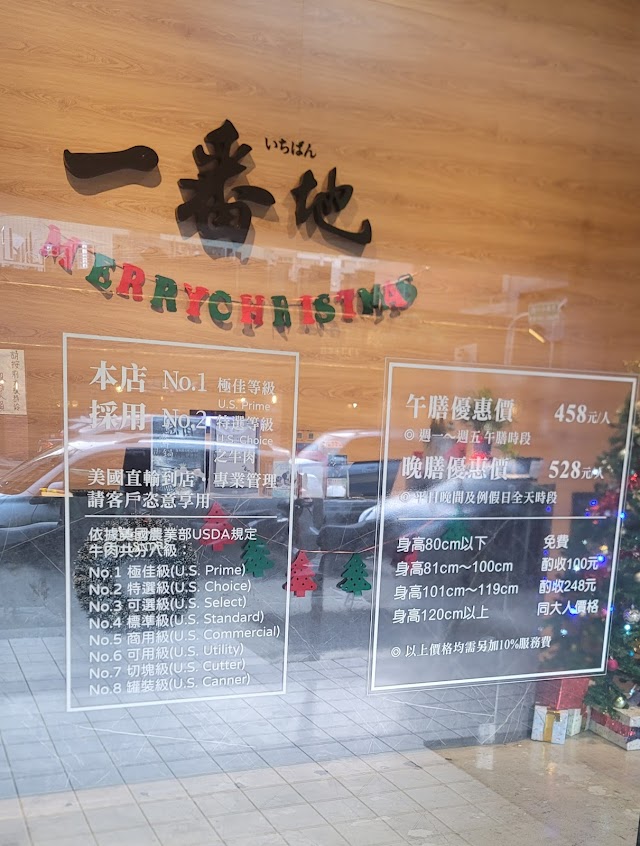 いちばん
一番地
MERRYCHRISTMAS
本店 No.1 極佳等級
U.S. Prime
採用 No.2 特選等級
U.S. Choice
之牛肉
美國直輸到店、專業管理
請客戶恣意享用
依據美國農業部USDA規定
牛肉共分八級
No.1 極佳級(U.S. Prime)
No.2 特選級(U.S. Choice)
No.3 可選級(U.S. Select)
No.4 標準級(U.S. Standard)
No.5 商用級(U.S. Commercial)
No.6 可用級(U.S. Utility)
No.7 切塊級(U.S. Cutter)
No.8 罐裝級(U.S. Canner)
午膳優惠價 458元/人
◎ 週一～週五 午膳時段
晚膳優惠價 528元/人
◎ 平日晚間及例假日全天時段
身高80cm以下 免費
身高81cm～100cm 酌收100元
身高101cm～119cm 酌收248元
身高120cm以上 同大人價格
◎ 以上價格均需另加10%服務費